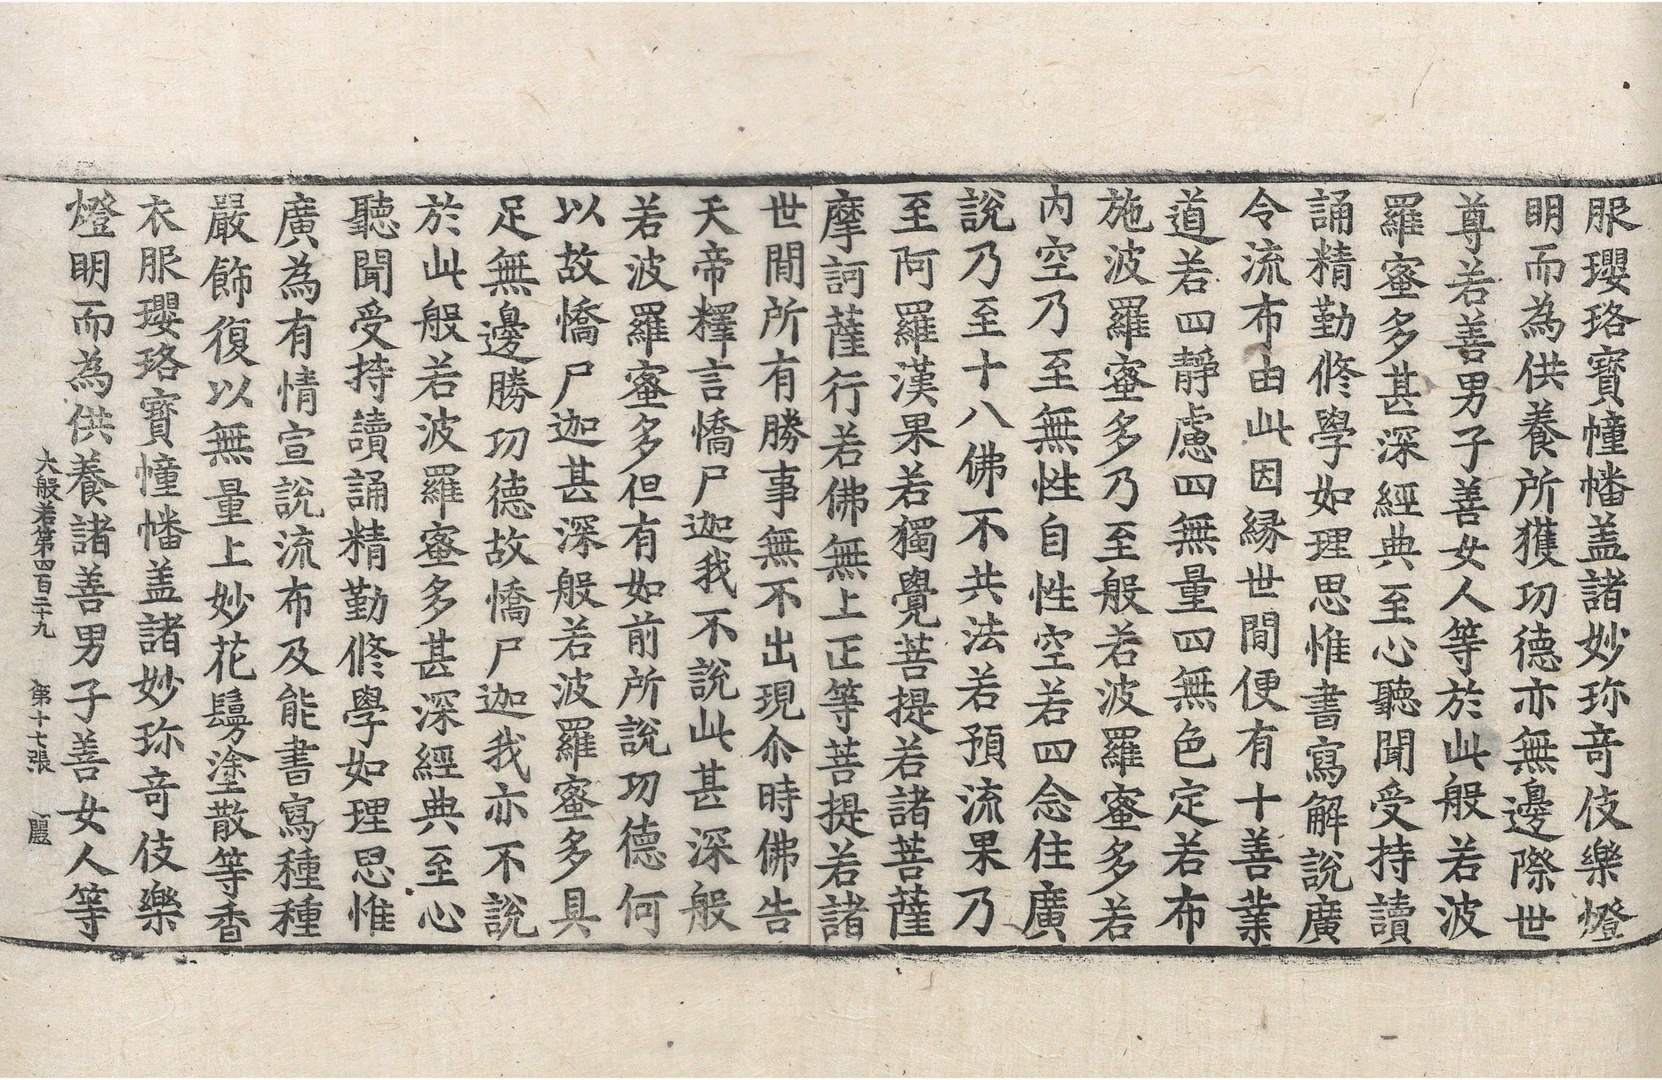 服瓔珞寶幢幡盖諸妙珎竒伎樂燈
明而為供養所獲㓛德亦無邊際世
尊若善男子善女人等於此般若波
羅蜜多甚深經典至心聽聞受持讀
誦精勤修學如理思惟書寫解說廣
令流布由此因縁世間便有十善業
道若四靜慮四無量四無色定若布
施波羅蜜多乃至般若波羅蜜多若
內空乃至無性自性空若四念住廣
說乃至十八佛不共法若預流果乃
至阿羅漢果若獨覺菩提若諸菩薩
摩訶薩行若佛無上正等菩提若諸
世間所有勝事無不出現尒時佛告
天帝釋言憍尸迦我不說此甚深般
若波羅蜜多但有如前所說㓛德何
以故憍尸迦甚深般若波羅蜜多具
足無邊勝㓛德故憍尸迦我亦不說
於此般若波羅蜜多甚深經典至心
聽聞受持讀誦精勤修學如理思惟
廣為有情宣說流布及能書寫種種
嚴飾復以無量上妙花鬘塗散等香
衣服瓔珞寶幢幡盖諸妙珎竒伎樂
燈明而為供養諸善男子善女人等
大般若第四百二十九 第十七張 麗